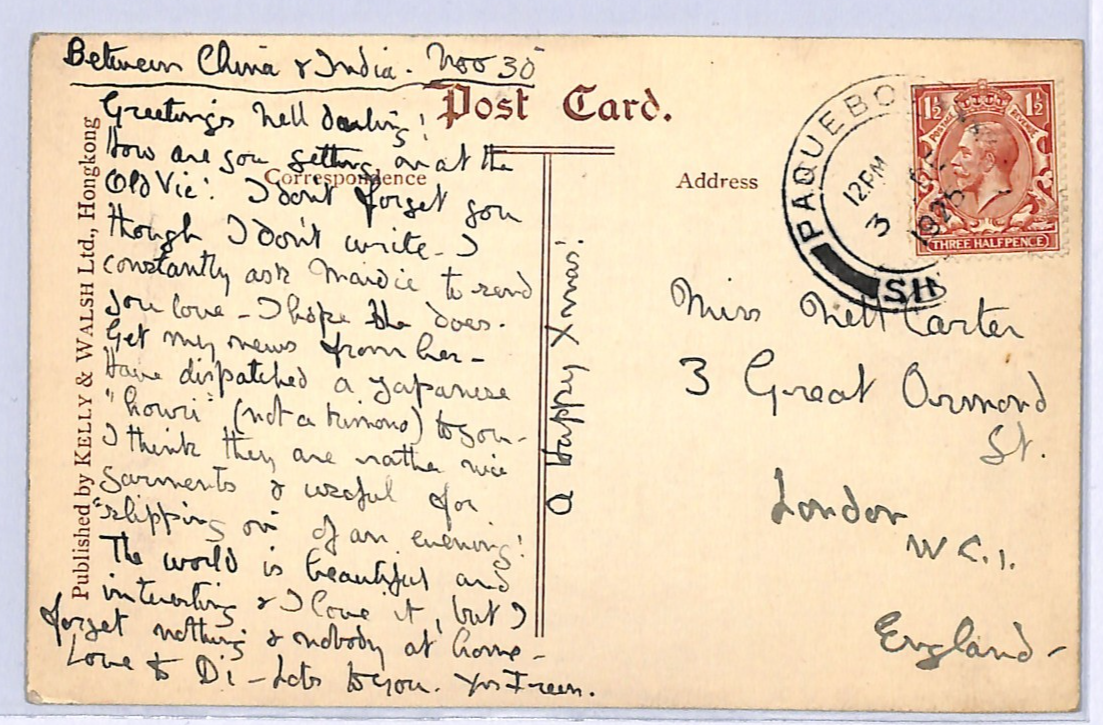 Between China & India. Nov 30
Post Card.
Correspondence
Address
Published by KELLY & WALSH Ltd., Hongkong
Greetings Nell darling!
How are you getting on at the
Old Vic? I don't forget you
though I don't write - I
constantly ask Maidie to send
you love - I hope she does.
Get my news from her -
Have dispatched a Japanese
"howri" (not a kimono) to you -
I think they are rather nice
garments & useful for
"slipping on" of an evening!
The world is beautiful and
interesting & I love it, but I
forget nothing & nobody at home -
Love to Di - Lots to you. Yrs
a happy Xmas!
PAQUEBO
12.PM
3
1925
SH
1½ 1½
POSTAGE REVENUE
THREE HALFPENCE
Miss Nell Carter
3 Great Ormond
St.
London
W.C.1.
England -